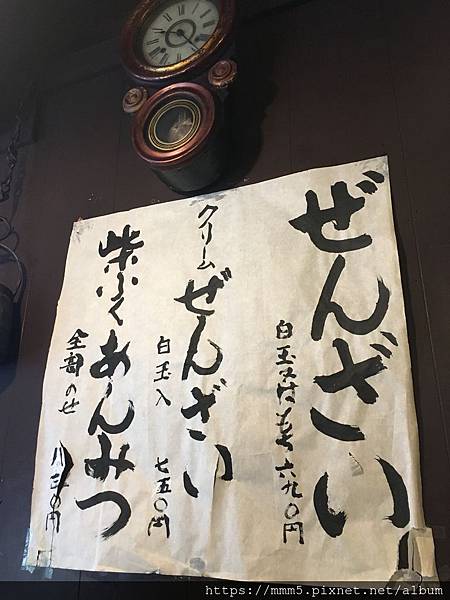 ぜんざい
白玉又はもち 六九〇円
クリームぜんざい
白玉入 七五〇円
柴ふくあんみつ
全部のせ 八三〇円
https://mmm5.pixnet.net/album